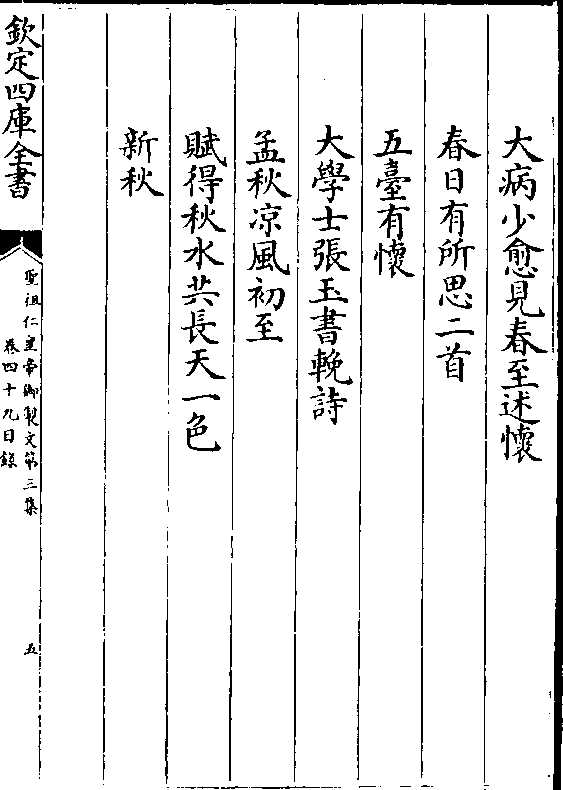 大病少愈見春至述懷
春日有所思二首
五臺有懷
大學士張玉書輓詩
孟秋凉風初至
賦得秋水共長天一色
新秋
欽定四庫全書
聖祖仁皇帝御製文第三集
卷四十九目錄
五